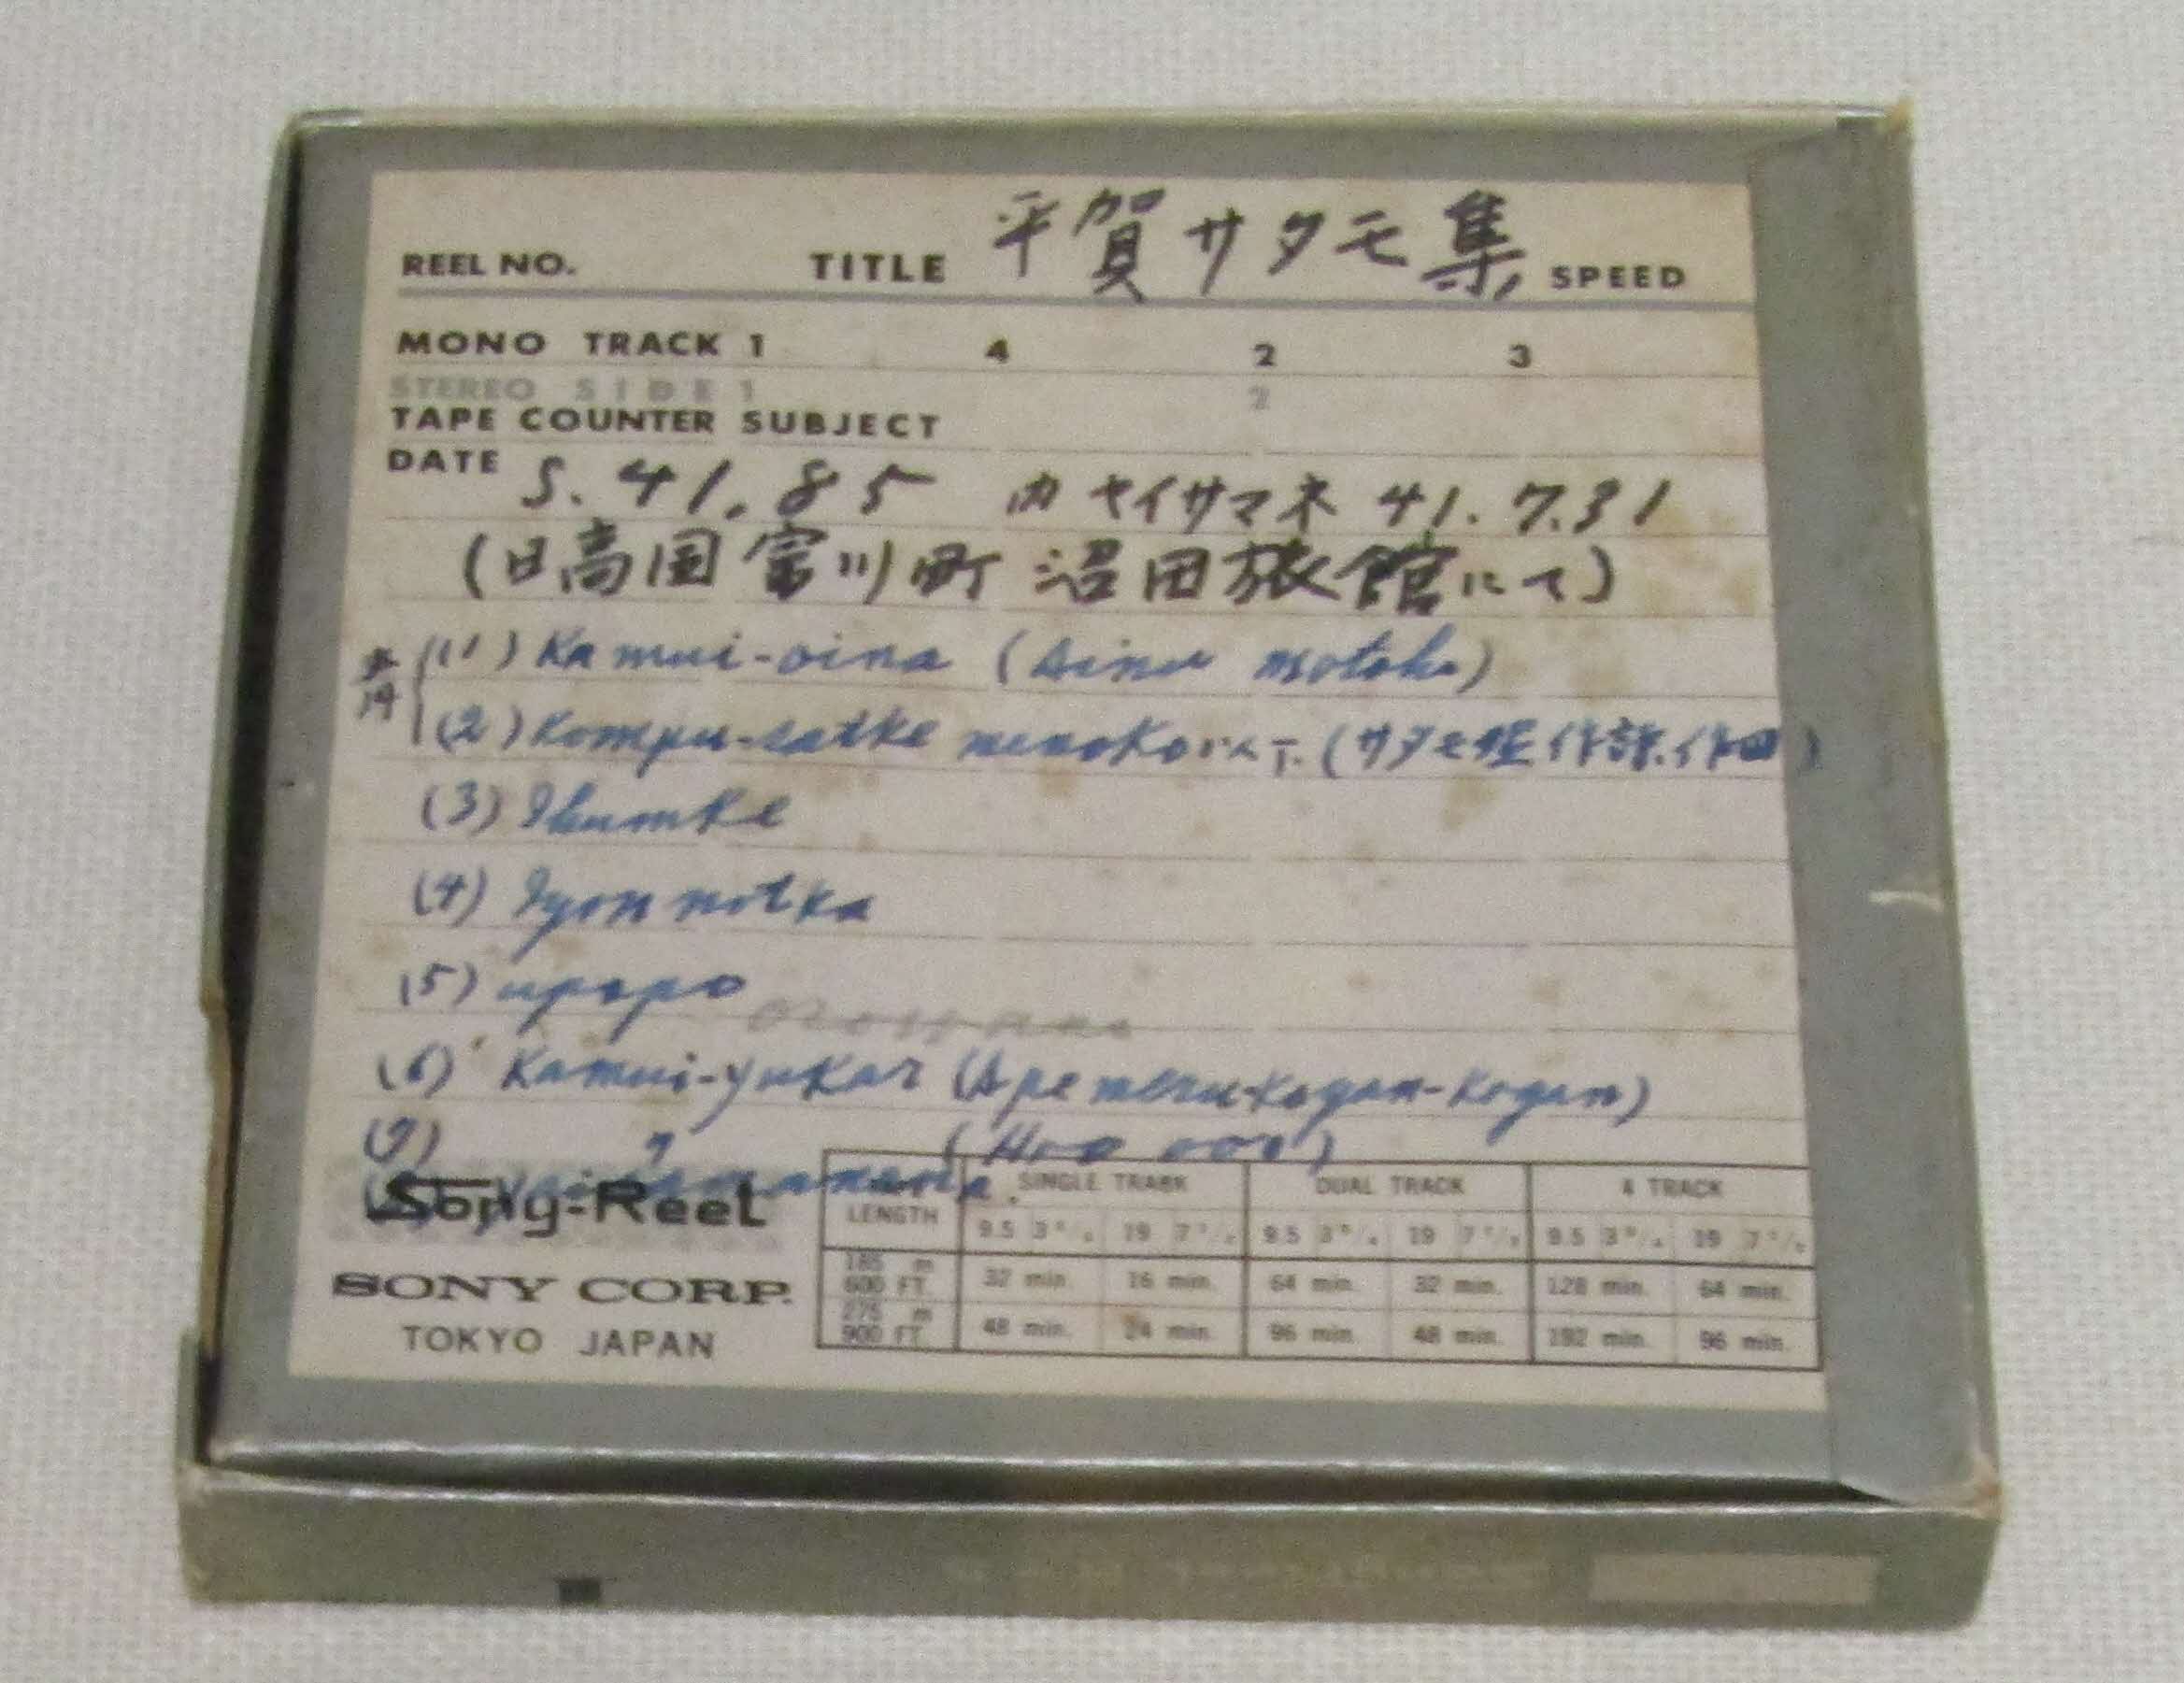 REEL NO. TITLE 平賀サタモ集 SPEED
MONO TRACK 1 4 2 3
STEREO SIDE 1 2
TAPE COUNTER SUBJECT
DATE S. 41. 8 5 内 ヤイサマネ 41. 7. 31
(日高国富川町 沼田旅館にて)
(1) Kamui-oina (Ainu motoho)
(2) Kompu-satke menoko 以下 (サタモ姪
(3) Ihumke
(4) Iyonnotka
(5) upopo
(6) Kamui-yukar (Ape meru koyan-koyan)
(7) 〃 (Hoo ooo)
Yaisamanena
Sony-Reel
SONY CORP.
TOKYO JAPAN
LENGTH SINGLE TRACK DUAL TRACK 4 TRACK
9.5 3 3/4 19 7 1/2 9.5 3 3/4 19 7 1/2 9.5 3 3/4 19 7 1/2
185 m 600 FT. 32 min. 16 min. 64 min. 32 min. 128 min. 64 min.
275 m 900 FT. 48 min. 24 min. 96 min. 48 min. 192 min. 96 min.